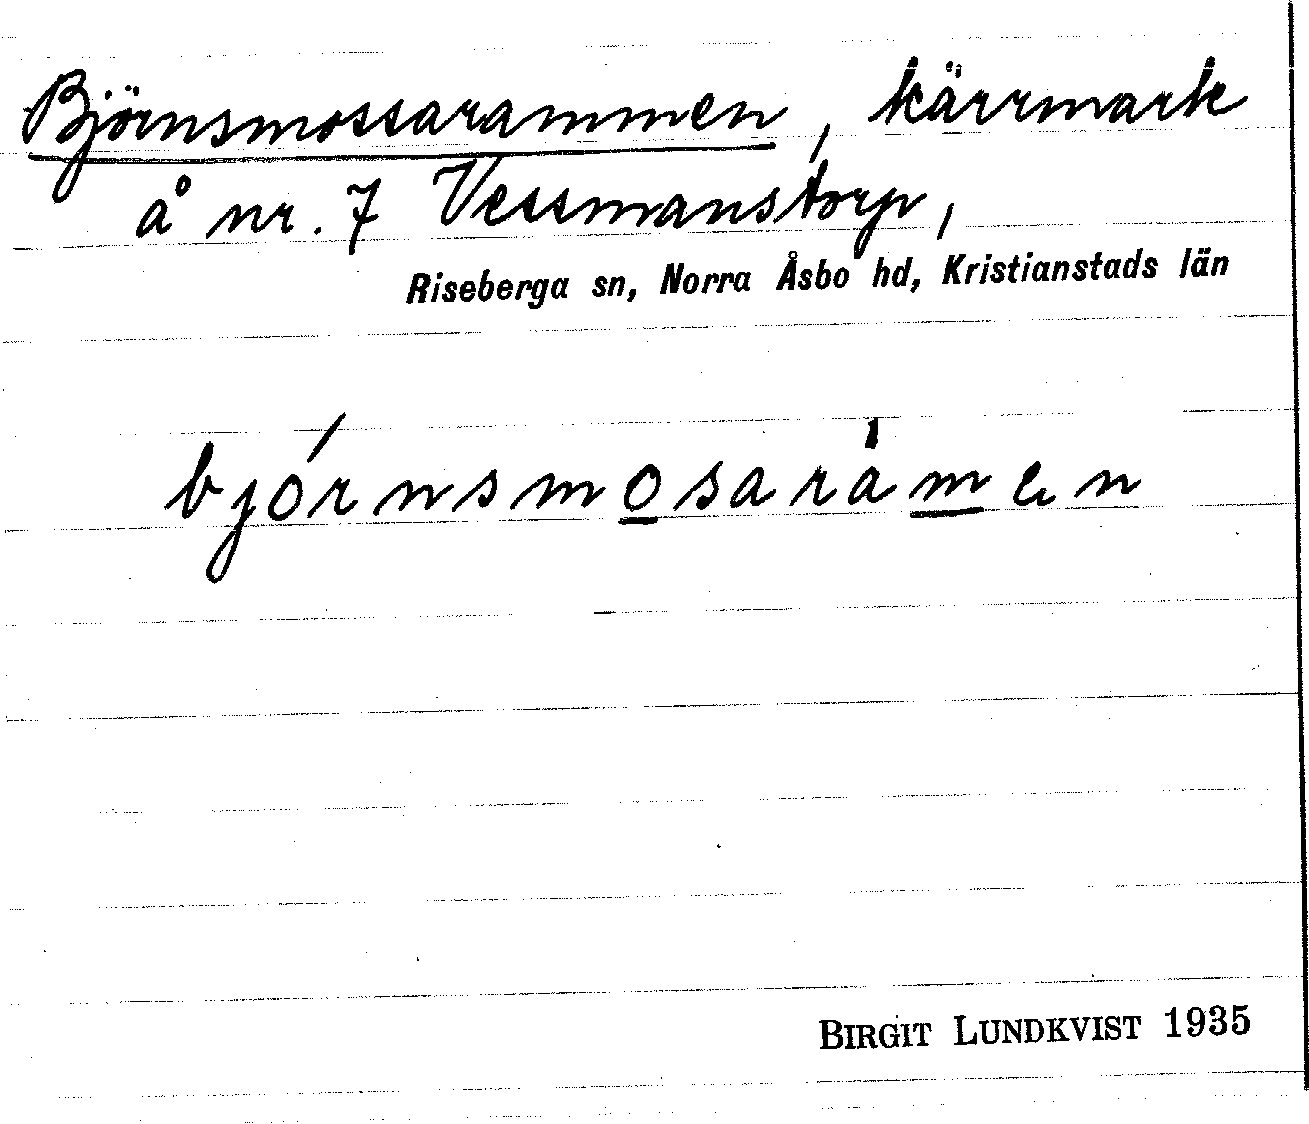 Björnsmossarammen, kärrmark
å nr. 7 Vessmanstorp,
Riseberga sn, Norra Åsbo hd, Kristianstads län
bjórnsmosaràmen
BIRGIT LUNDKVIST 1935